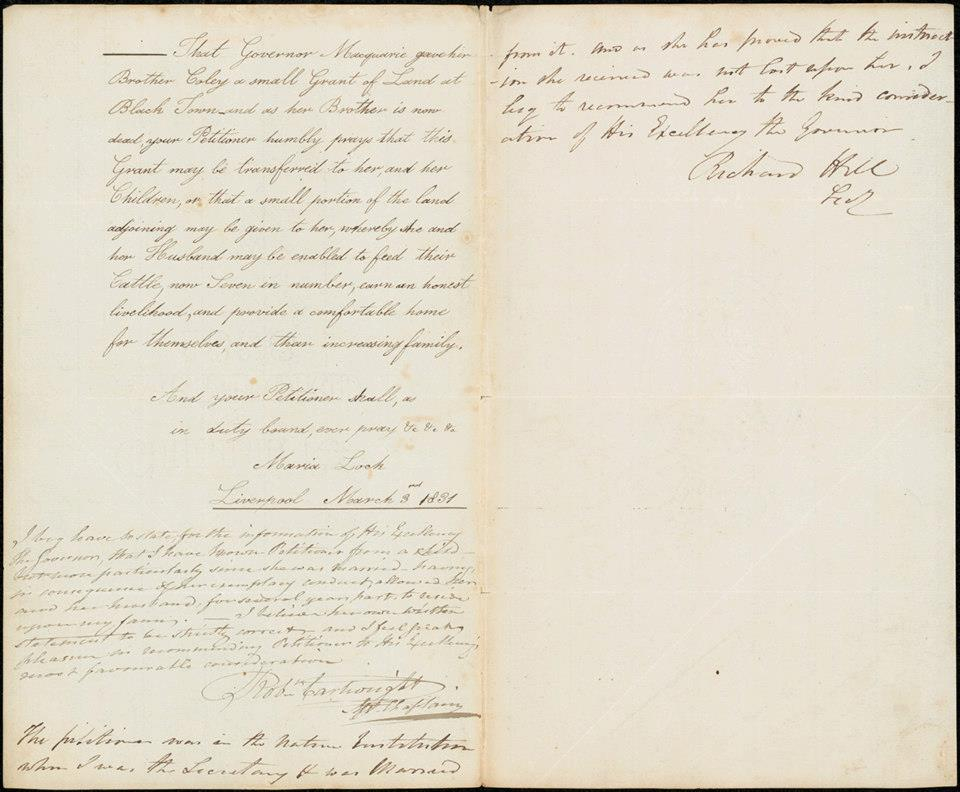 That Governor Macquarie gave her
Brother Coley a small Grant of Land at
Black Town and as her Brother is now
dead, your Petitioner humbly prays that this
Grant may be transferred to her and her
Children, or that a small portion of the land
adjoining may be given to her, whereby she and
her Husband may be enabled to feed their
Cattle, now Seven in number, earn an honest
livelihood, and provide a comfortable home
for themselves, and their increasing family.
And your Petitioner shall, as
in duty bound, ever pray &c &c &c
Maria Lock
Liverpool March 3rd 1831
I beg leave to state, for the information of His Excellency
the Governor, that I have known Petitioner from a child
but more particularly since she was married - having,
in consequence of her exemplary conduct, allowed her
and her husband, for several years past, to reside
upon my farm. — I believe her own written
statement to be strictly correct, and I feel great
pleasure in recommending Petitioner to His Excellency's
most favourable consideration
Robt Cartwright
Chaplain
The petitioner was in the Native Institution
when I was the Secretary & was Married
from it. And as she has proved that the instruct
-ion she received was not lost upon her, I
beg to recommend her to the kind consider-
ation of His Excellency the Governor
Richard Hill